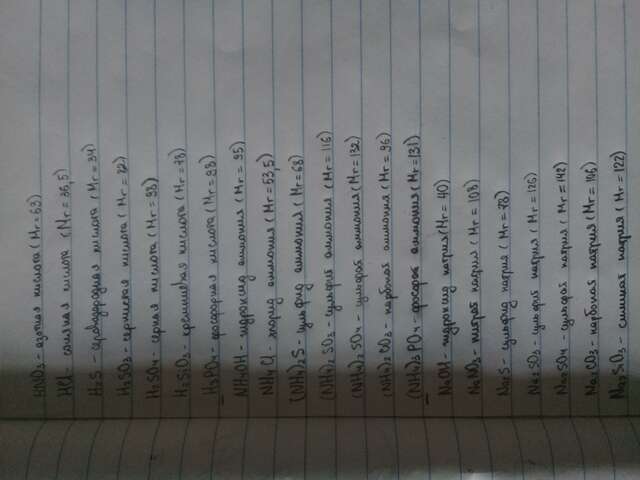 HNO3 - азотная кислота (Mr = 63)
HCl - соляная кислота (Mr = 36,5)
H2S - сероводородная кислота (Mr = 34)
H2SO3 - сернистая кислота (Mr = 82)
H2SO4 - серная кислота (Mr = 98)
H2SiO3 - кремниевая кислота (Mr = 78)
H3PO4 - фосфорная кислота (Mr = 98)
NH4OH - гидроксид аммония (Mr = 95)
NH4Cl - хлорид аммония (Mr = 53,5)
(NH4)2S - сульфид аммония (Mr = 68)
(NH4)2SO3 - сульфит аммония (Mr = 116)
(NH4)2SO4 - сульфат аммония (Mr = 132)
(NH4)2CO3 - карбонат аммония (Mr = 96)
(NH4)3PO4 - фосфат аммония (Mr = 131)
NaOH - гидроксид натрия (Mr = 40)
NaNO3 - нитрат натрия (Mr = 108)
Na2S - сульфид натрия (Mr = 78)
Na2SO3 - сульфит натрия (Mr = 126)
Na2SO4 - сульфат натрия (Mr = 142)
Na2CO3 - карбонат натрия (Mr = 106)
Na2SiO3 - силикат натрия (Mr = 122)